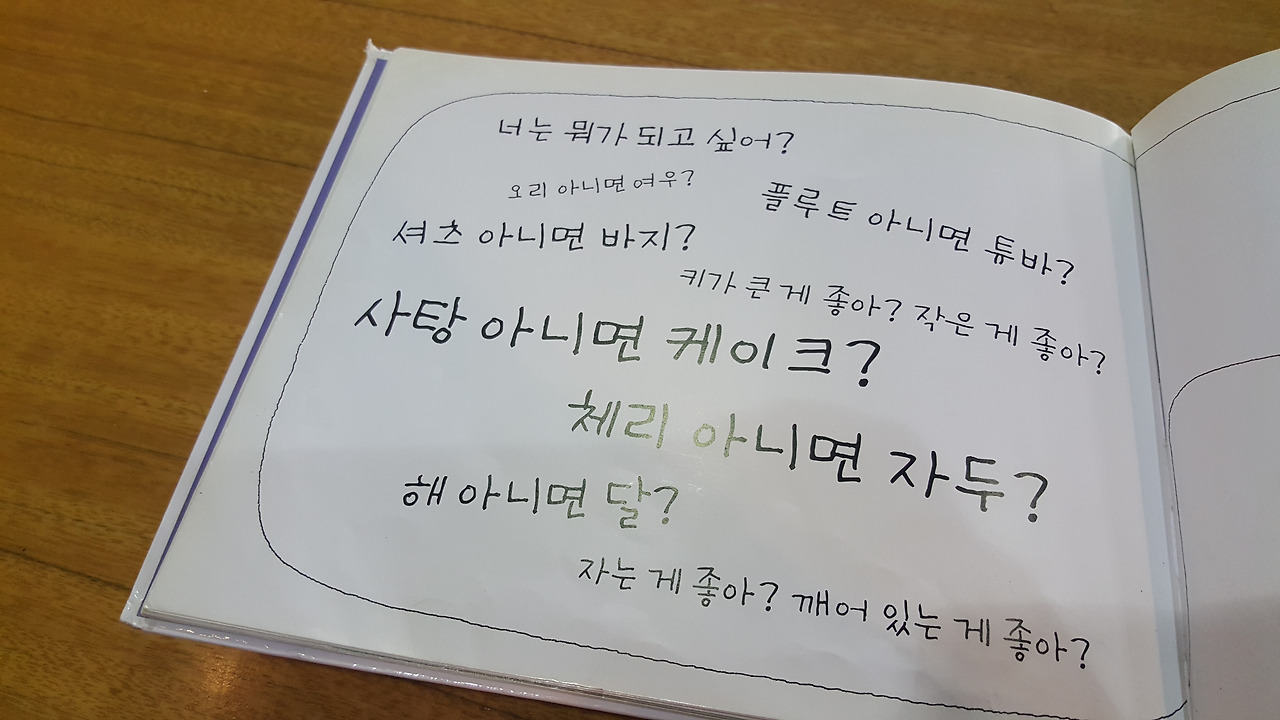 너는 뭐가 되고 싶어?
오리 아니면 여우?
플루트 아니면 튜바?
셔츠 아니면 바지?
키가 큰 게 좋아? 작은 게 좋아?
사탕 아니면 케이크?
체리 아니면 자두?
해 아니면 달?
자는 게 좋아? 깨어 있는 게 좋아?